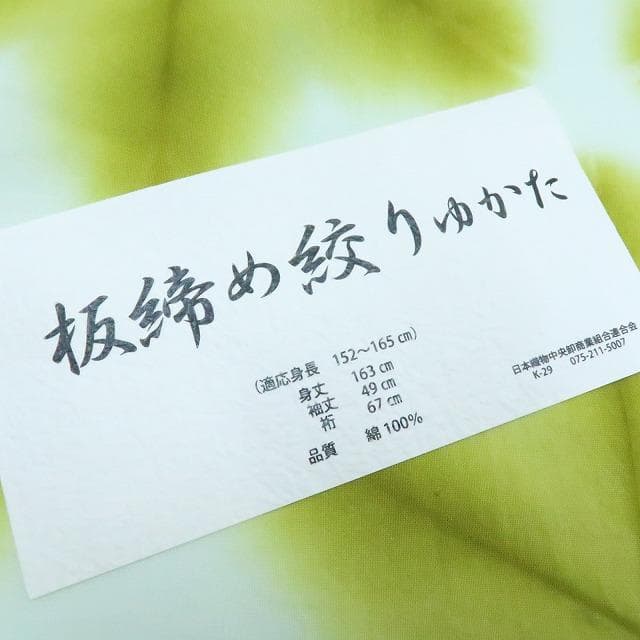 板締め絞りゆかた
（適応身長　152～165㎝）
身丈　163㎝
袖丈　49㎝
裄　67㎝
品質　綿100%
日本織物中央卸商業組合連合会
K-29　075-211-5007